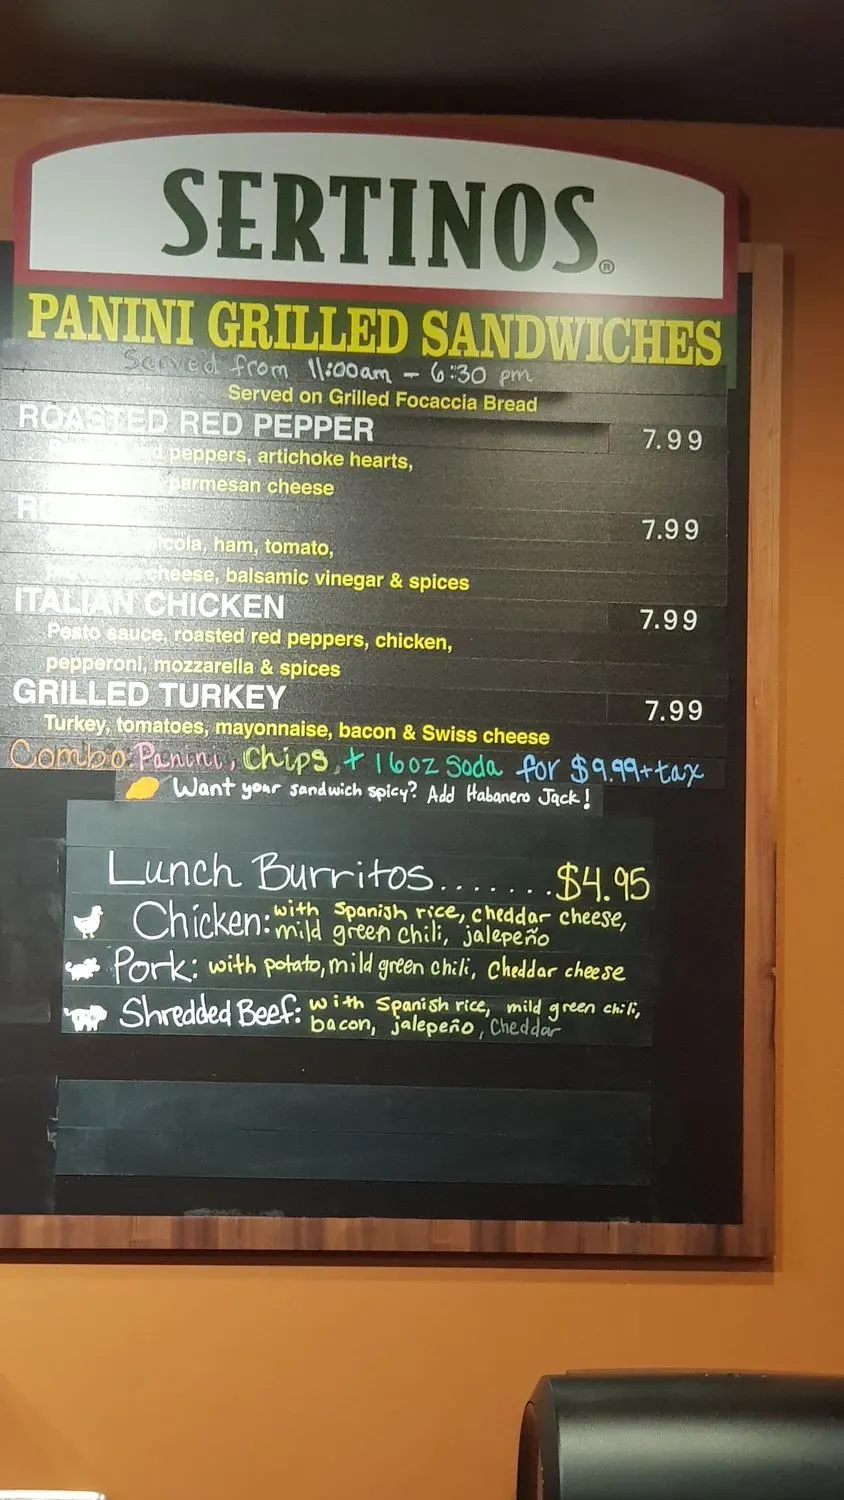 SERTINOS®
PANINI GRILLED SANDWICHES
Served from 11:00am - 6:30 pm
Served on Grilled Focaccia Bread
ROASTED RED PEPPER 7.99
peppers, artichoke hearts,
parmesan cheese
7.99
ham, tomato,
cheese, balsamic vinegar & spices
ITALIAN CHICKEN 7.99
Pesto sauce, roasted red peppers, chicken,
pepperoni, mozzarella & spices
GRILLED TURKEY 7.99
Turkey, tomatoes, mayonnaise, bacon & Swiss cheese
Combo: Panini, Chips, + 16oz Soda for $9.99+tax
Want your sandwich spicy? Add Habanero Jack!
Lunch Burritos.......$4.95
Chicken: with Spanish rice, cheddar cheese,
mild green chili, jalepeño
Pork: with potato, mild green chili, Cheddar cheese
Shredded Beef: with Spanish rice, mild green chili,
bacon, jalepeño, Cheddar